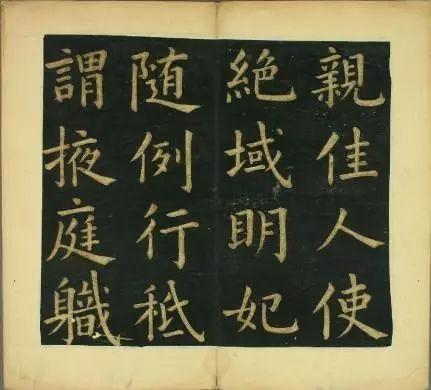 親佳人使
絕域明妃
隨例行秪
謂掖庭軄